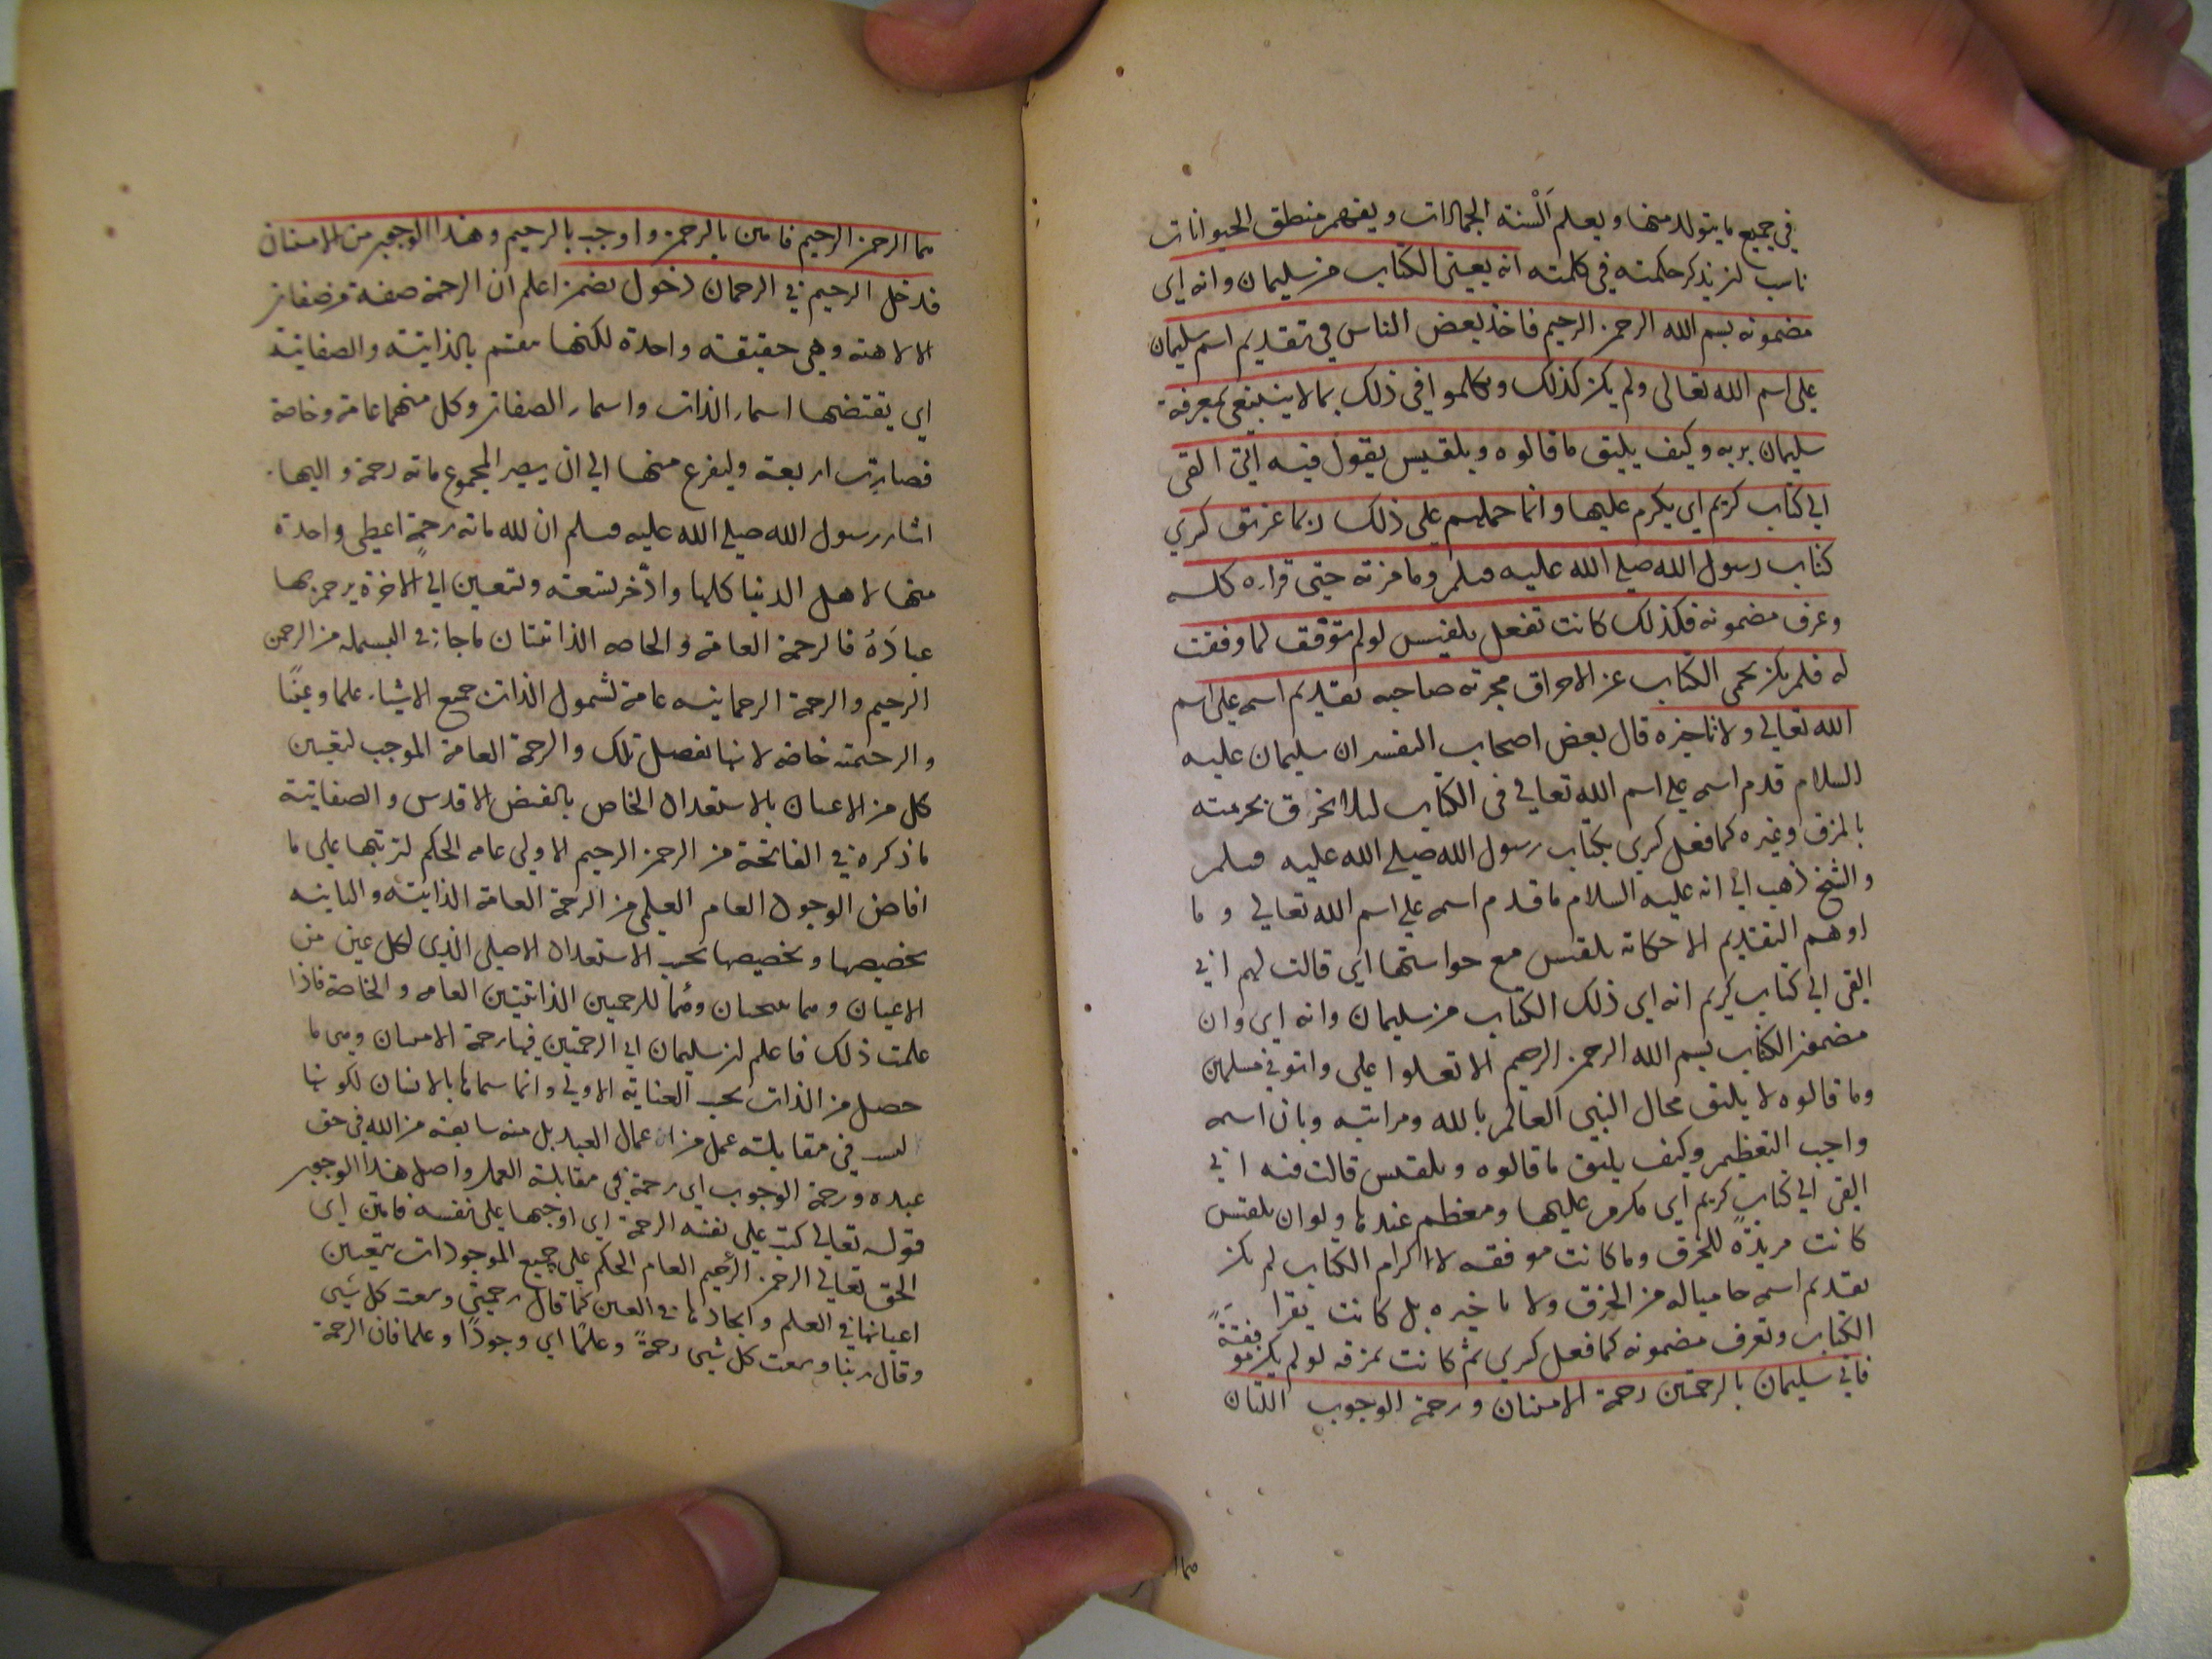 في جميع ما يتولد منها ويعلم اَلْسنة الجمادات ويفهم منطق الحيوانات
ناسب لن يذكر حكمته في كلمته انه يعنى الكتاب من سليمان وانه اى
مضمونه بسم الله الرحمن الرحيم فاخذ بعض الناس في تقديم اسم سليمان
على اسم الله تعالى ولم يكن كذلك وتكلموا في ذلك بما لا ينبغى بمعرفة
سليمان بربه وكيف يليق ما قالوه وبلقيس يقول فيه انى القى
الي كتاب كريم اى يكرم عليها وانما حملهم على ذلك ربما تمزيق كسري
كتاب رسول الله صلى الله عليه وسلم وما مزقه حتى قراه كله
وعرف مضمونه فكذلك كانت تفعل بلقيس لو لم توفق لما وفقت
له فلم يكن يحمى الكتاب عن الاحراق بحرمة صاحبه تقديم اسمه على اسم
الله تعالى ولا تاخيره قال بعض اصحاب التفسير ان سليمان عليه
السلام قدم اسمه على اسم الله تعالى فى الكتاب لئلا يخرق بحرمته
بالمزق وغيره كما فعل كسرى بكتاب رسول الله صلى الله عليه وسلم
والشيخ ذهب الى انه عليه السلام ما قدم اسمه على اسم الله تعالى و ما
اوهم التقديم الا حكاية بلقيس مع حواشيها اى قالت لهم انى
القى الى كتاب كريم انه اى ذلك الكتاب من سليمان وانه اى وان
مضمون الكتاب بسم الله الرحمن الرحيم الا تعلوا على واتونى مسلمين
وما قالوه لا يليق بحال النبى العالم بالله ومراتبه وبان اسمه
واجب التعظيم وكيف يليق ما قالوه وبلقيس قالت فيه انى
القى الى كتاب كريم اى مكرم عليها ومعظم عندها ولو ان بلقيس
كانت مريدة للخرق وما كانت موفقه لاكرام الكتاب لم يكن
تقديم اسمه حاميا له من الخرق ولا تاخيره بل كانت تقرا
الكتاب وتعرف مضمونه كما فعل كسرى ثم كانت تمزقه لو لم يكن موفقةً
فاتى سليمان بالرحمتين رحمة الامتنان ورحمة الوجوب اللتان
هما الرحمن الرحيم فامتن بالرحمن واوجب بالرحيم وهذا الوجوب من الامتنان
فدخل الرحيم في الرحمان دخول تضمن اعلم ان الرحمة صفة من صفات
الالاهته وهي حقيقته واحدة لكنها تنقسم بالذاتية والصفاتية
اى يقتضيها اسماء الذات واسماء الصفات وكل منهما عامة وخاصة
فصارت اربعة وليفرع منها الى ان يصير المجموع مائة رحمة واليها
اشار رسول الله صلى الله عليه وسلم ان لله مائة رحمة اعطى واحدة
منها لاهل الدنيا كلها وادّخر تسعة وتسعين الى الاخرة يرحم بها
عبادَهُ فالرحمة العامة والخاصه الذاتيتان ما جاء في البسمله من الرحمن
الرحيم والرحمة الرحمانيه عامة لشمول الذات جميع الاشياء علما وعينًا
والرحيمية خاصة لانها تفصيل تلك والرحمة العامة الموجب لتعيين
كل من الاعيان بالاستعداد الخاص بالفيض الاقدس والصفاتية
ما ذكره في الفاتحة من الرحمن الرحيم الاولى عامه الحكم لترتبها على ما
افاض الوجود العام العلمى من الرحمة العامة الذاتية والثانيه
تخصيصها وتخصيصها بحسب الاستعداد الاصلى الذى لكل عين من
الاعيان وهما نتيجتان للرحمتين الذاتيتين العامه والخاصة فاذا
علمت ذلك فاعلم لن سليمان اتى الرحمتين فيها رحمة الامتنان وهى ما
حصل من الذات بحسب العناية الاولى وانما سماها بالامتنان لكونها
ليست في مقابلة عمل من اعمال العبد بل منه سابقة من الله في حق
عبده ورحمة الوجوب اى رحمة في مقابلة العمل واصل هذا الوجوب
قوله تعالى كتب على نفسه الرحمة اى اوجبها على نفسه فامتن اى
الحق تعالى الرحمن الرحيم العام الحكم على جميع الموجودات بتعيين
اعيانها فى العلم وايجادها في العين كما قال رحمتى وسعت كل شيى
وقال ربنا وسعت كل شيى رحمةً وعلمًا اى وجودًا وعلما فان الرحمة